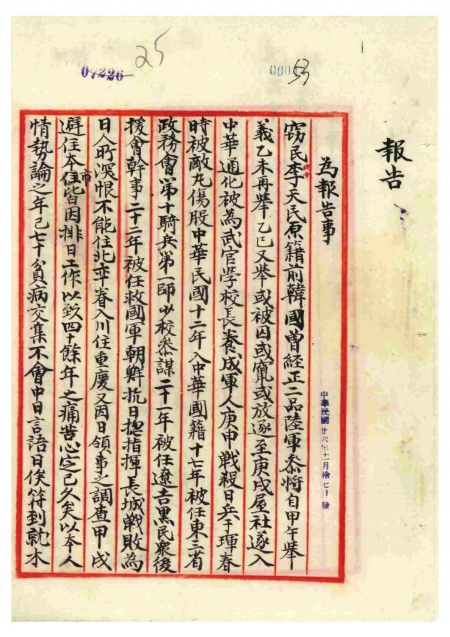 25
04226
53
報告
為報告事
中華民國廿六年十二月拾七日 發
竊民李天民原籍前韓國曾經正二品陸軍叅將自甲午舉
義乙未再举乙巳又举或被囚或竄或放逐至庚戌屋社逐入
中華通化被為武官学校長養成軍人庚申戰殺日兵于琿春
時被敵丸傷股中華民國十二年入中華國籍十七年被任東三省
政務會第十騎兵第一師少校叅謀二十一年被任遼吉黑民衆後
援會幹事二十二年被任救國軍朝鮮抗日摠指揮長城戰敗為
日人所深恨不能住北率眷入川住重慶又因日領事之調查甲戌
避住本市皆因排日工作以致四十餘年之痛苦心定已久矣以本人
情勢論之年已七十貧病交集不會中日言語日俟符到就木